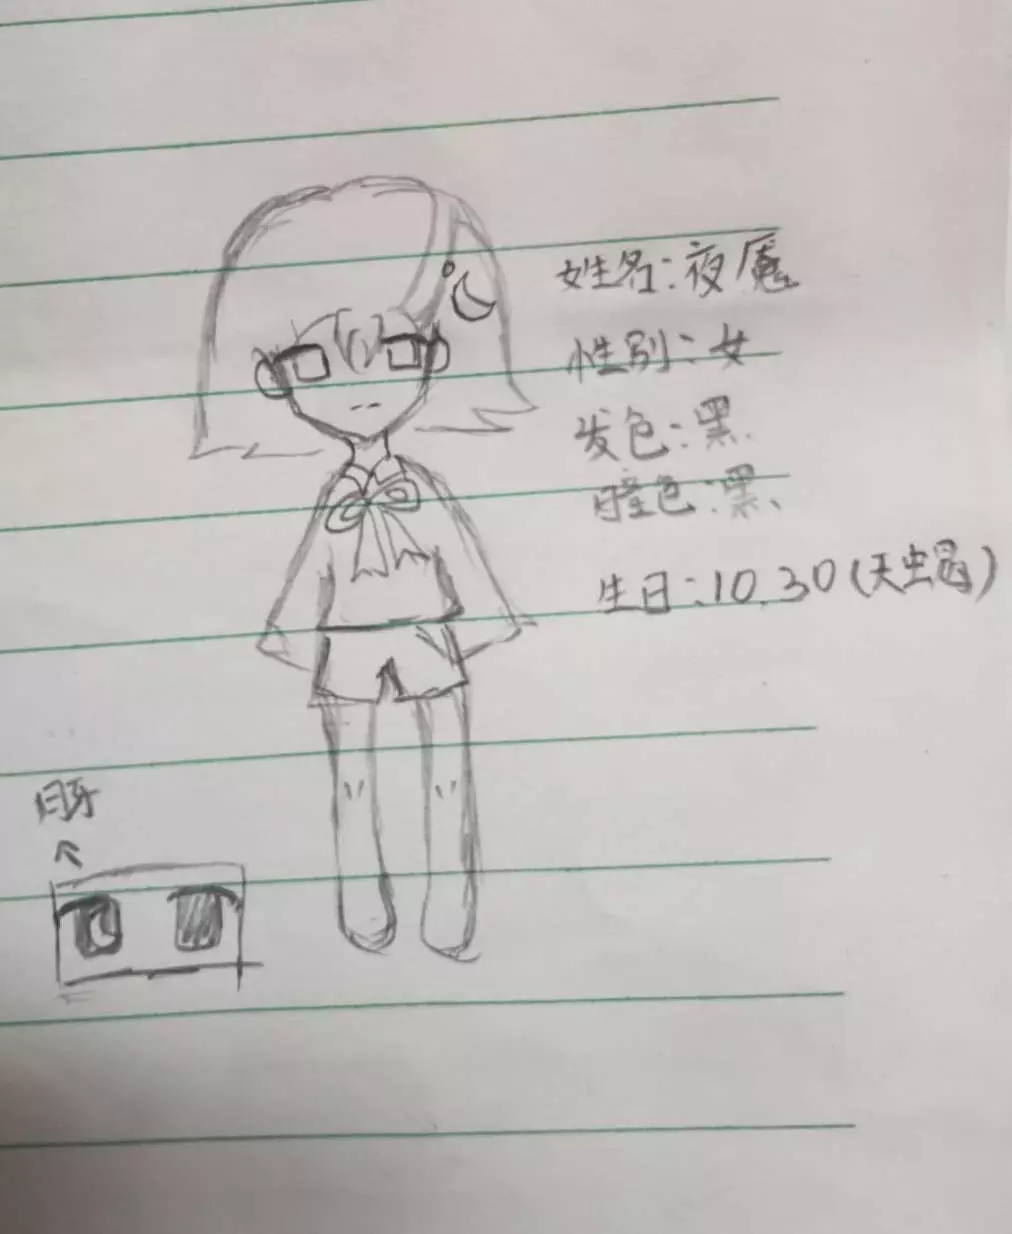 姓名:夜魇
性别:女
发色:黑
瞳色:黑
生日:10.30(天蝎)
月牙